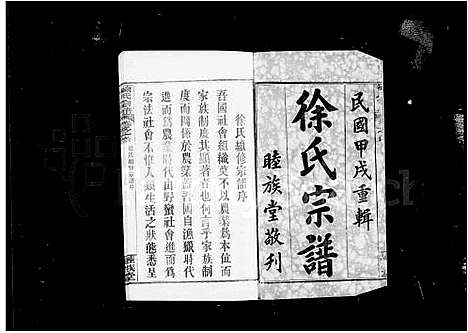 民國甲戌重輯
徐氏宗譜
睦族堂敬刊
徐氏續修宗譜序
吾國社會組織莫不以農業爲本位而
家族制度其顯著者也何言乎家族制
度而關係於農業蓋吾國自漁獵時代
進而爲農業時代由野蠻社會進而爲
宗法社會不惟人類生活之狀態悉呈
徐氏宗譜
睦族堂